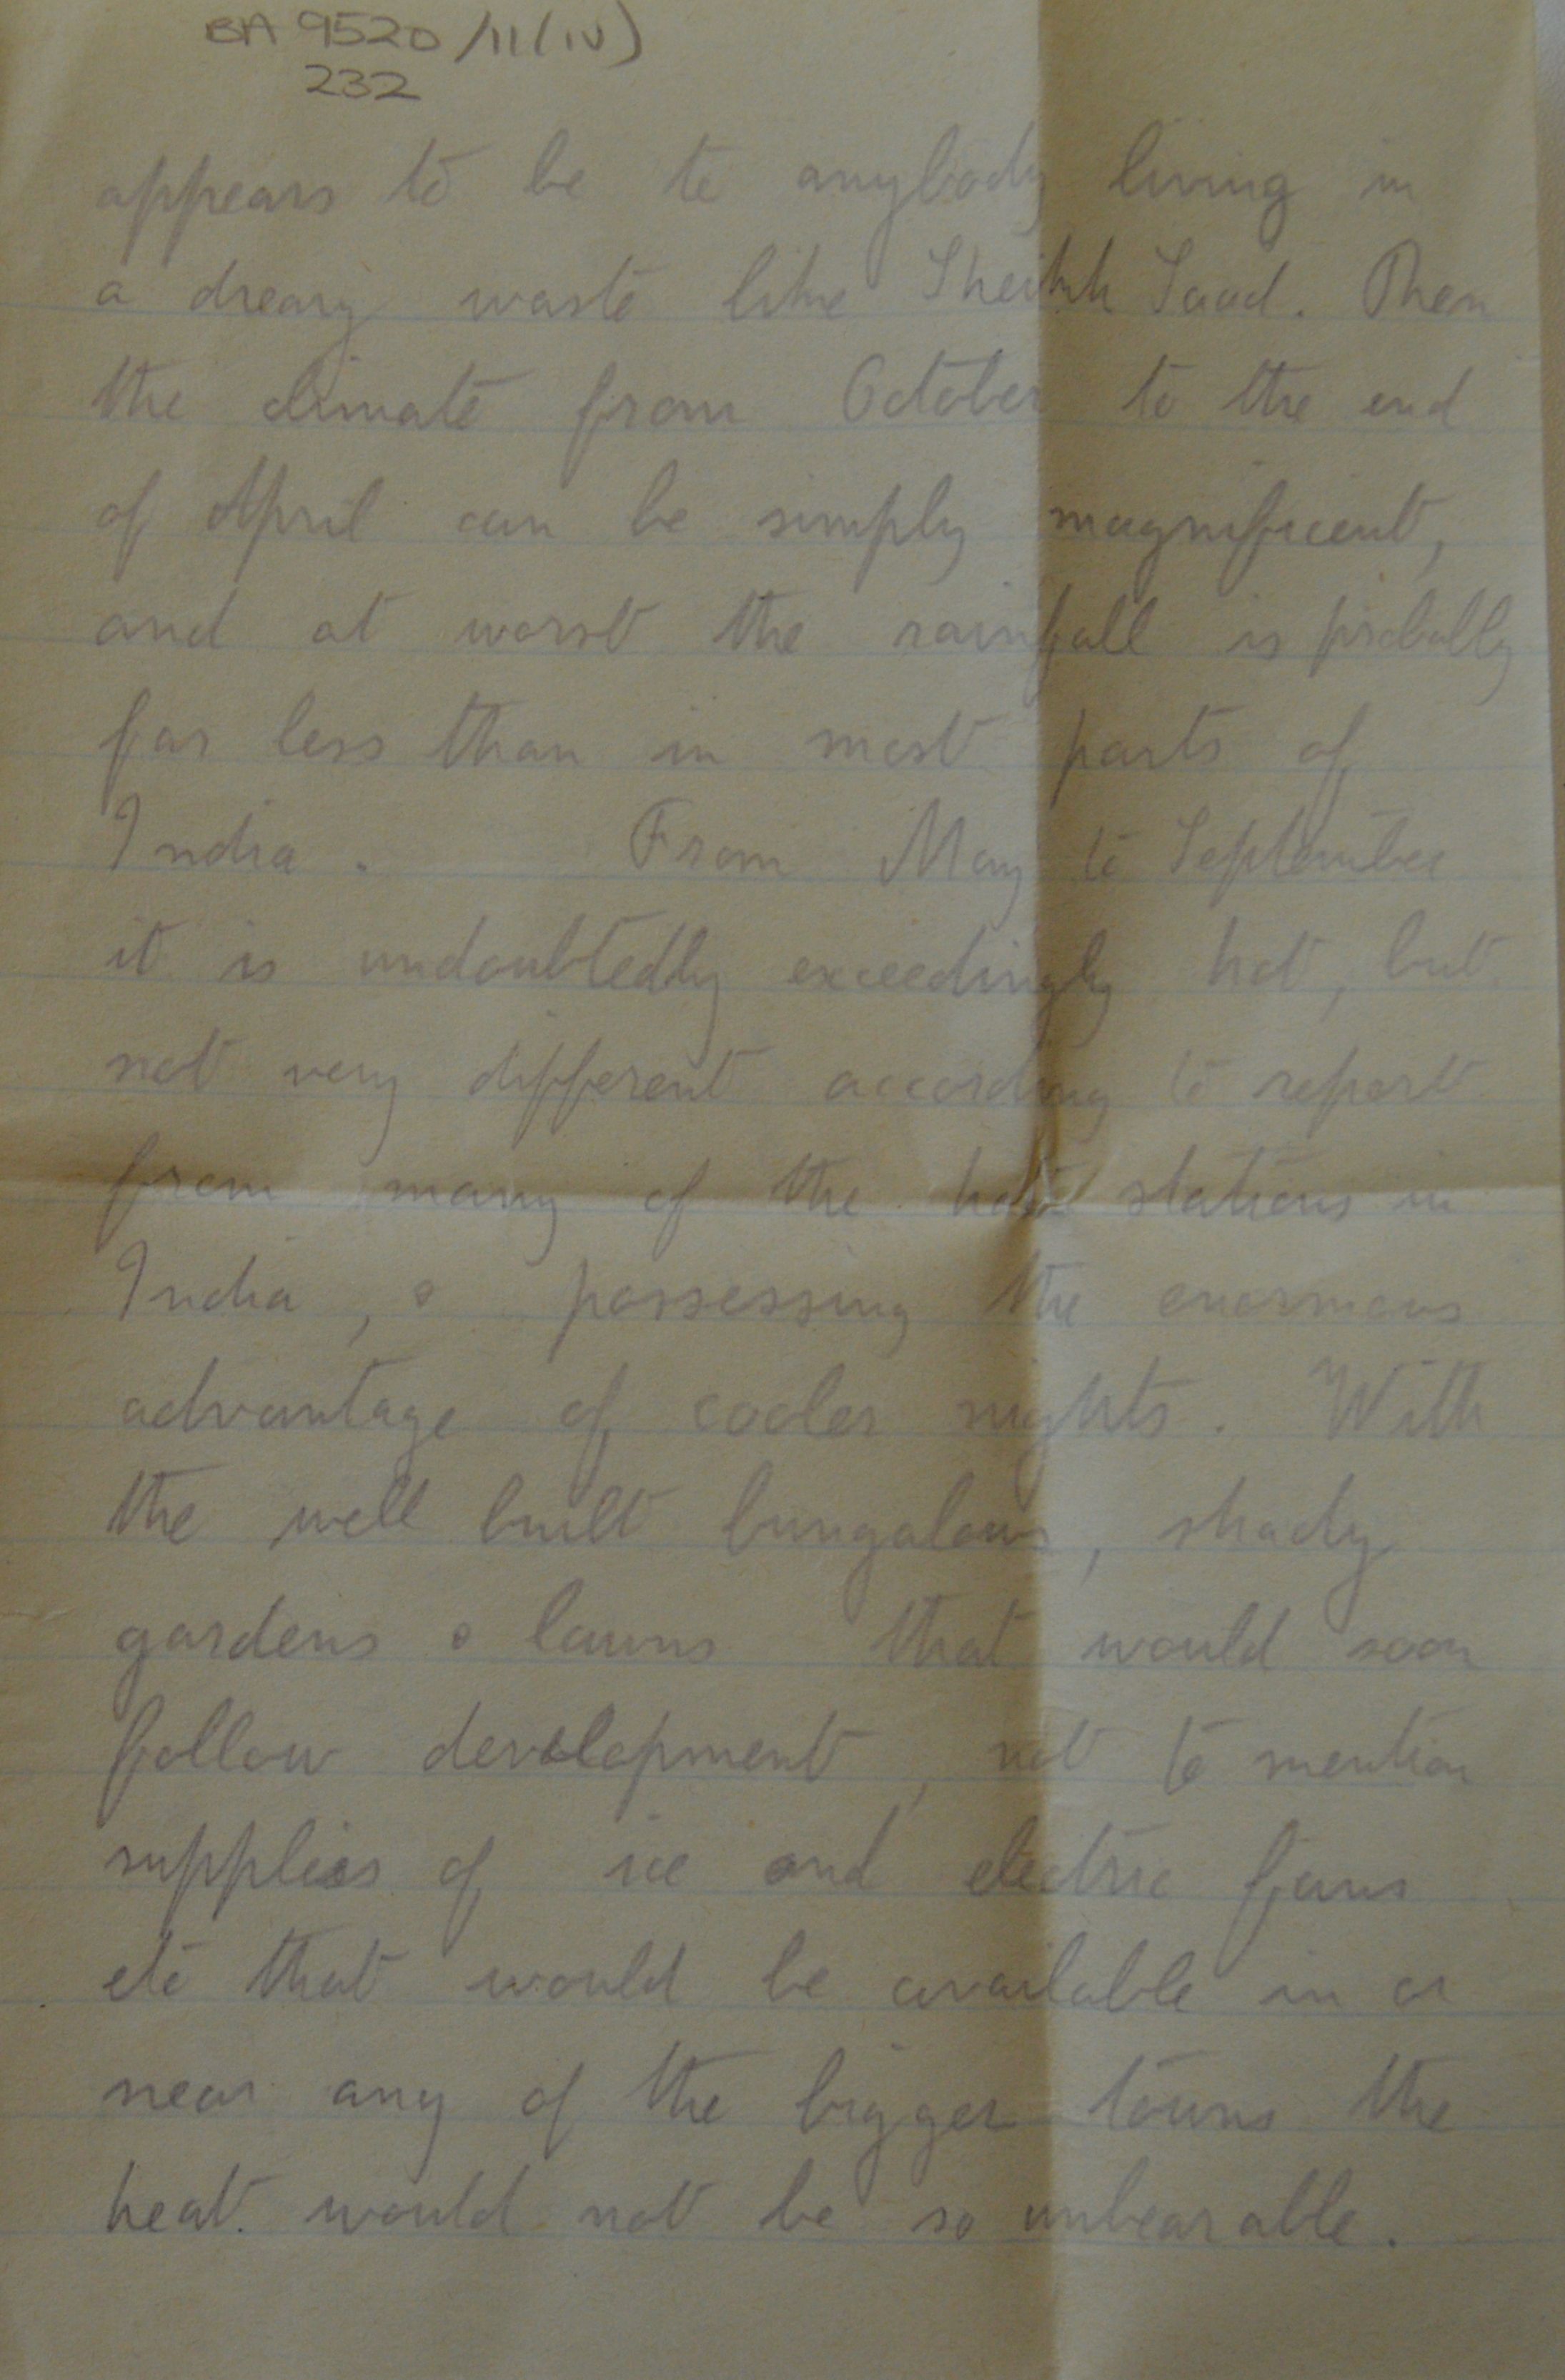 BA 9520/11(iv)
232
appears to be to anybody living in
a dreary waste like Sheikh Saad. Then
the climate from October to the end
of April can be simply magnificent,
and at worst the rainfall is probably
far less than in most parts of
India. From May to September
it is undoubtedly exceedingly hot, but
not very different according to report
from many of the stations in
India, & possessing the enormous
advantage of cooler nights. With
the well built bungalows, shady
gardens & lawns that would soon
follow development, not to mention
supplies of ice and electric fans
etc that would be available in or
near any of the bigger towns the
heat would not be so unbearable.